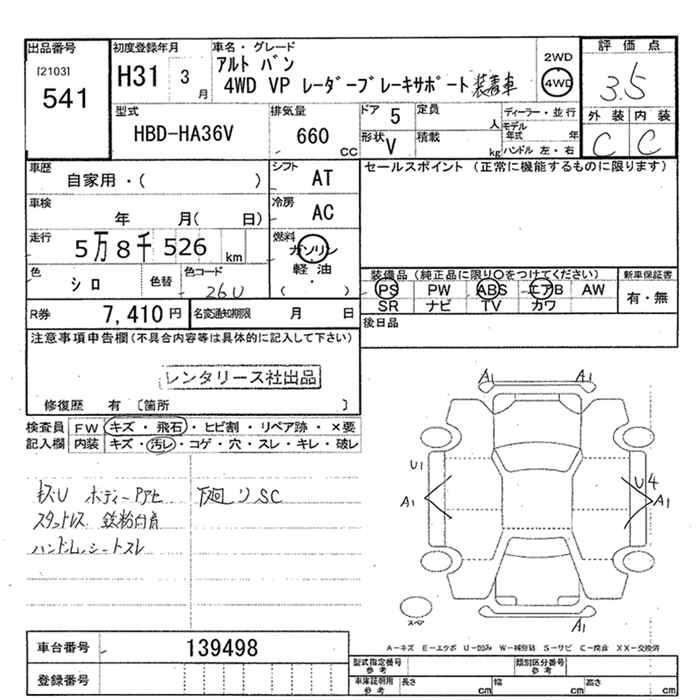 出品番号
[2103]
541
初度登録年月
H31 3 月
車名・グレード
アルト バン
4WD VP レーダーブレーキサポート 装着車
2WD
4WD
評価点
3.5
外装 内装
C C
型式
HBD-HA36V
排気量
660 CC
ドア 5
形状 V
定員 人
積載 kg
ディーラー・並行
モデル年式 年
ハンドル 左・右
車歴
自家用・( )
シフト AT
車検
年 月( 日)
冷房 AC
走行
5万8千526 km
燃料
ガソリン
軽油
( ・ )
色 シロ
色替
色コード
26U
R券 7,410 円
名変通知期限 月 日
セールスポイント (正常に機能するものに限ります)
装備品(純正品に限り○をつけてください)
PS PW ABS エアB AW
SR ナビ TV カワ
新車保証書
有・無
後日品
注意事項申告欄(不具合内容等は具体的に記入して下さい)
レンタリース社出品
修復歴 有 〔箇所 〕
検査員記入欄
FW キズ・飛石・ヒビ割・リペア跡・×要
内装 キズ・汚レ・コゲ・穴・スレ・キレ・破レ
スタットレス
ハンドル、シートスレ
下廻りSC
A1 A1
U1
A1
U4
A1
A1
スペア
A-キズ E-エクボ U-凹み W-補修跡 S-サビ C-腐食 XX-交換済
車台番号 139498
登録番号
型式指定番号 参考
類別区分番号 参考
車庫証明用 参考
長さ cm
幅 cm
高さ cm